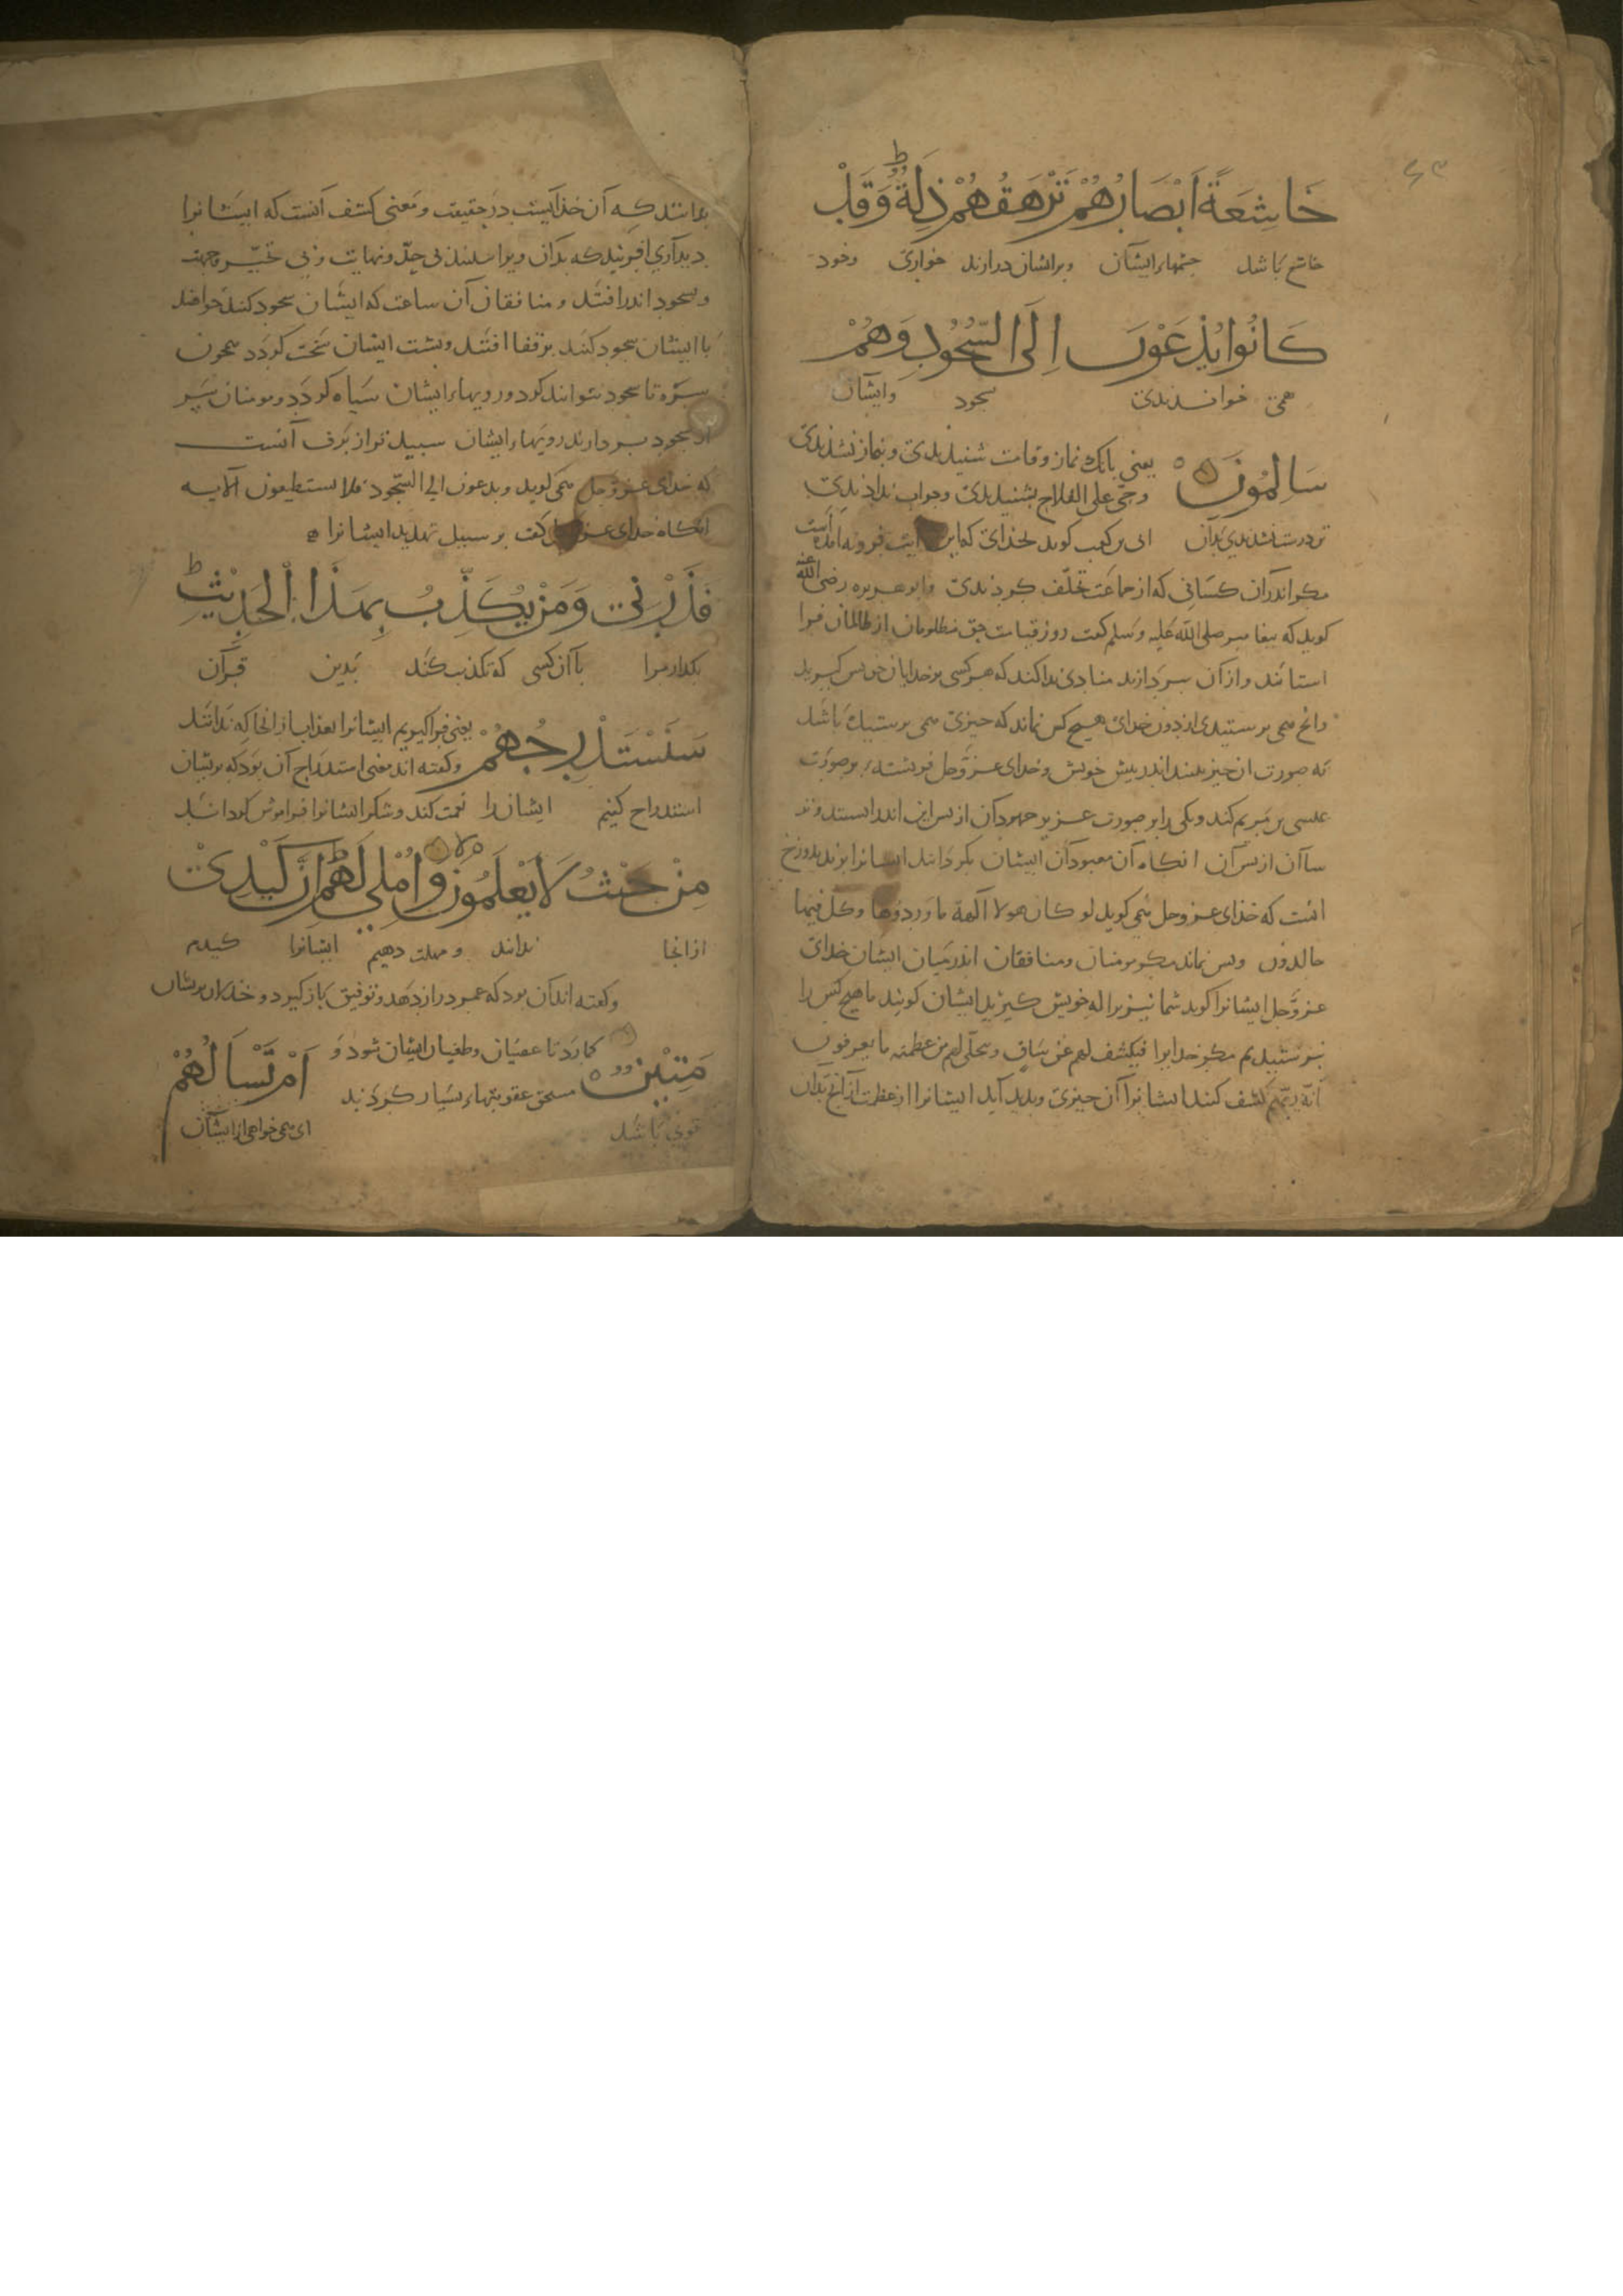 ۶۳
خَاشِعَةً اَبْصَارُهُمْ تَرْهَقُهُمْ ذِلَّةٌ ط وَقَدْ
خاشع باشد چشمهاء ایشان وبرایشان درارند خواری وخود
كَانُوا يُدْعَوْنَ اِلَى السُّجُودِ وَهُمْ
همی خواندندی سجود وایشان
سَالِمُونَ یعنی بانک نماز وقامت شنیدندی ونماز نشدندی
وحی علی الفلاح بشنیدندی وجواب ندادندی
تن درست شدندی بدان ابی بن کعب کوید بخدای که این آیت فرونه امدست
مکر اندران کسانی که از جماعت تخلّف کردندی وابوهریره رضی الله عنه
کوید که پیغامبر صلی الله علیه وسلم کفت روز قیامت حق مظلومان از ظالمان فرا
استانند وازان بپردازند منادی ندا کند که هر کسی برخدایان خویش کیرید
وانج همی پرستیدی از دون خدای هیچ کس نماند که چیزی همی پرستیده باشد
نه صورت ان چیز بیند اندر پیش خویش وخدای عزّوجل فریشتهٔ بر صورت
عیسی بن مریم کند ویکی را بر صورت عزیر جهودان از پس این اندر ایستند وتر
سان از پس آن انکاه آن معبودان ایشان بکردانند ایشانرا برند بدوزخ
اینست که خدای عزوجل همی کوید لو کان هولا آلهة ما وردوها وکل فیها
خالدون وپس نماند مکر مومنان ومنافقان اندر میان ایشان خدای
عزّوجل ایشانرا کوید شما نیز براله خویش کیرید ایشان کویند ما هیچ کس را
نپرستیدیم مکر خدایرا فیکشف لهم عن ساقٍ ویتجلّی لهم من عظمته ما یعرفون
انّه ربّهم کشف کنند ایشانرا آن چیزی وپدید آید ایشانرا از عظمت از انج بدان
بدانند که آن خدایست در حقیقت ومعنی کشف آنست که ایشانرا
دیداری افریند که بدان ویرا بینند بی حدّ ونهایت وبی تحیّر وجهت
وبسجود اندر افتند ومنافقان آن ساعت که ایشان سجود کنند خواهند
با ایشان سجود کنند برقفا افتند وپشت ایشان سخت کردد همچون
سیره تا سجود نتوانند کرد ورویهاء ایشان سیاه کردد ومومنان سر
از سجود بردارند رویهاء ایشان سپیدتر از برف آنست
که خدای عزّوجل همی کوید ویدعون الی السّجود فلا یستطیعون الآیه
انکاه خدای عزوجل کفت بر سبیل تهدید ایشانرا
فَذَرْنِی وَمَنْ يُكَذِّبُ بِهَذَا الْحَدِيْثِ ط
بکذار مرا با آن کسی که تکذیب کند بدین قرآن
سَنَسْتَدْرِجُهُمْ یعنی فرا کیریم ایشانرا بعذاب از انجا که ندانند
وکفته اند معنی استدراج آن بود که برایشان
استدراج کنیم ایشان را نعمت کند وشکر ایشانرا فراموش کرداند
مِنْ حَيْثُ لَا يَعْلَمُونَ لا وَاُمْلِي لَهُمْ ط اِنَّ كَيْدِی
ازانجا ندانند ومهلت دهیم ایشانرا کیدم
وکفته اند آن بود که عمر دراز دهد وتوفیق باز کیرد وخذلان برایشان
مَتِيْنٌ کمارد تا عصیان وطغیان ایشان شود و اَمْ تَسْأَلُهُمْ
مستحق عقوبتهاء بسیار کردند
قوی باشد ای همی خواهی از ایشان